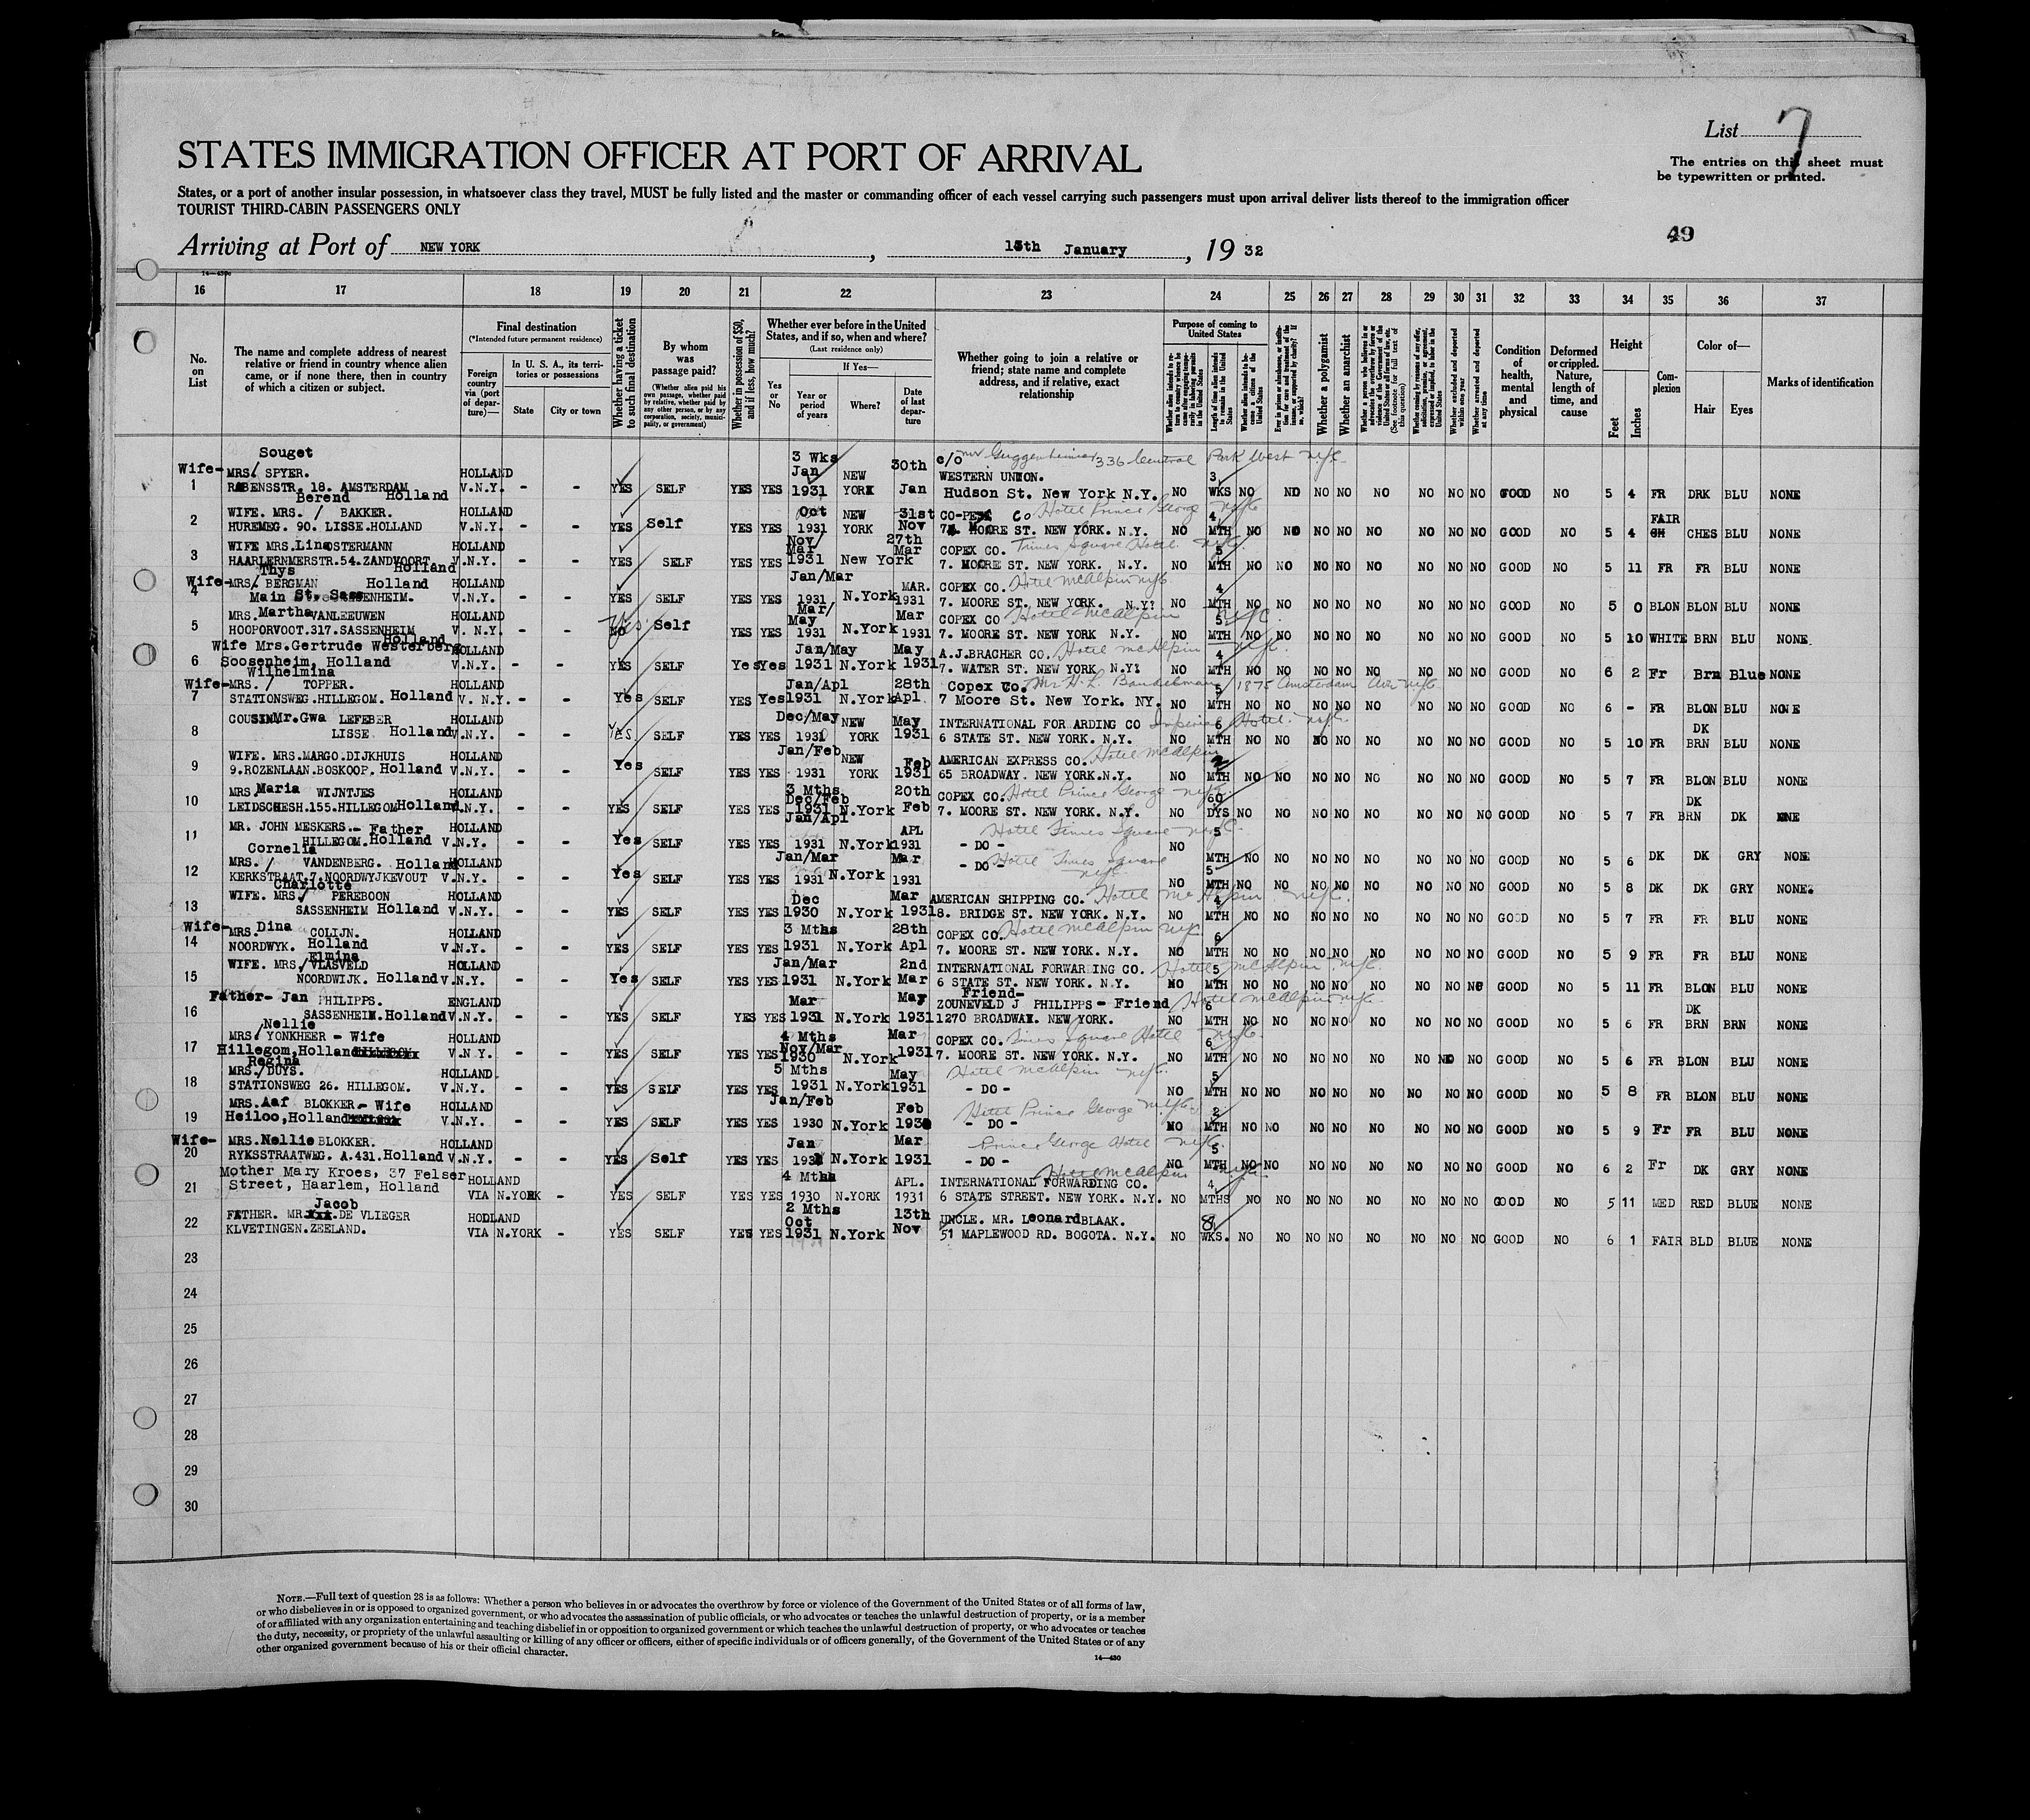 List 7
STATES IMMIGRATION OFFICER AT PORT OF ARRIVAL
The entries on this sheet must
be typewritten or printed.
States, or a port of another insular possession, in whatsoever class they travel, MUST be fully listed and the master or commanding officer of each vessel carrying such passengers must upon arrival deliver lists thereof to the immigration officer
TOURIST THIRD-CABIN PASSENGERS ONLY
49
Arriving at Port of NEW YORK, 15th January, 19 32
16 17 18 19 20 21 22 23 24 25 26 27 28 29 30 31 32 33 34 35 36 37
No. on List
The name and complete address of nearest relative or friend in country whence alien came, or if none there, then in country of which a citizen or subject.
Final destination
(*Intended future permanent residence)
Foreign country via (port of departure)—
In U. S. A., its territories or possessions
State
City or town
Whether having a ticket to such final destination
By whom was passage paid?
(Whether alien paid his own passage, whether paid by relative, whether paid by any other person, or by any corporation, society, municipality, or government)
Whether in possession of $50, and if less, how much?
Whether ever before in the United States, and if so, when and where?
(Last residence only)
Yes or No
If Yes—
Year or period of years
Where?
Date of last departure
Whether going to join a relative or friend; state name and complete address, and if relative, exact relationship
Purpose of coming to United States
Length of time alien intends to remain in the United States
Whether a polygamist
Whether an anarchist
Whether excluded and deported within one year
Whether arrested and deported at any time
Condition of health, mental and physical
Deformed or crippled. Nature, length of time, and cause
Height
Feet
Inches
Complexion
Color of—
Hair
Eyes
Marks of identification
Souget 3 Wks 30th c/o Mr Guggenheimer 336 Central Park West NYC
Wife- MRS/ SPYER. HOLLAND Jan NEW WESTERN UNION. 3
1 RABENSSTR. 18. AMSTERDAM Holland V.N.Y. - - YES SELF YES YES 1931 YORK Jan Hudson St. New York N.Y. NO WKS NO NO NO NO NO NO NO NO GOOD NO 5 4 FR DRK BLU NONE
Berend
WIFE. MRS. / BAKKER. HOLLAND Oct NEW 31st CO-PEX Co Hotel Prince George NYC 4 FAIR
2 HUREMEG. 90. LISSE.HOLLAND V.N.Y. - - YES Self YES YES 1931 YORK Nov 7. MOORE ST. NEW YORK. N.Y. NO MTH NO NO NO NO NO NO NO NO GOOD NO 5 4 CHES BLU NONE
WIFE MRS.Lina OSTERMANN HOLLAND Nov/Mar 27th Mar COPEX CO. Times Square Hotel NYC 5
3 HAARLERNMERSTR.54.ZANDVOORT Holland V.N.Y. - - YES SELF YES YES 1931 New York 7. MOORE ST. NEW YORK. N.Y. NO MTH NO NO NO NO NO NO NO NO GOOD NO 5 11 FR FR BLU NONE
Thys
Wife-MRS/ BERGMAN Holland HOLLAND Jan/Mar MAR. COPEX CO. Hotel McAlpin NYC 4
4 Main St. Sassenheim. V.N.Y. - - YES SELF YES YES 1931 N.York 1931 7. MOORE ST. NEW YORK. N.Y? NO MTH NO NO NO NO NO NO NO NO GOOD NO 5 0 BLON BLON BLU NONE
MRS.Martha VANLEEUWEN HOLLAND Mar/May Mar COPEX CO Hotel McAlpin NYC 5
5 HOOPORVOOT.317.SASSENHEIM Holland V. N.Y. - - Yes Self YES YES 1931 N.York 1931 7. MOORE ST. NEW YORK N.Y. NO MTH NO NO NO NO NO NO NO NO GOOD NO 5 10 WHITE BRN BLU NONE
Wife Mrs.Gertrude Westerberg HOLLAND Jan/May May A.J.BRACHER CO. Hotel McAlpin NYC 4
6 Soosenheim, Holland V.N.Y. - - YES SELF Yes Yes 1931 N.York 1931 7. WATER ST. NEW YORK N.Y? NO MTH NO NO NO NO NO NO NO NO GOOD NO 6 2 Fr Brn Blue NONE
Wilhelmina
Wife-MRS. / TOPPER. HOLLAND Jan/Apl 28th Copex Co. Mr H. L. 1875 Amsterdam Ave NYC 5
7 STATIONSWEG.HILLEGOM. Holland V. N.Y. - - Yes SELF YES Yes 1931 N.York Apl 7 Moore St. New York. NY. NO MTH NO NO NO NO NO NO NO NO GOOD NO 6 - FR BLON BLU NONE
COUSIN Mr.Gwa LEFEBER HOLLAND Dec/May NEW May INTERNATIONAL FORWARDING CO Imperial Hotel. NYC 6 DK
8 LISSE Holland V.N.Y. - - YES. SELF YES YES 1931 YORK 1931 6 STATE ST. NEW YORK. N.Y. NO MTH NO NO NO NO NO NO NO NO GOOD NO 5 10 FR BRN BLU NONE
WIFE. MRS.MARGO.DIJKHUIS HOLLAND Jan/Feb NEW Feb AMERICAN EXPRESS CO. Hotel McAlpin 2
9 9.ROZENLAAN.BOSKOOP. Holland V.N.Y. - - Yes SELF YES YES 1931 YORK 1931 65 BROADWAY. NEW YORK.N.Y. NO MTH NO NO NO NO NO NO NO NO GOOD NO 5 7 FR BLON BLU NONE
MRS.Maria WIJNTJES HOLLAND 3 Mths Dec/Feb 20th COPEX CO. Hotel Prince George NYC 60 DK
10 LEIDSCHESH.155.HILLEGOM Holland V.N.Y. - - YES SELF YES YES 1931 N.York Feb 7. MOORE ST. NEW YORK. N.Y. NO DYS NO NO NO NO NO NO NO NO GOOD NO 5 7 FR BRN DK NONE
MR. JOHN MESKERS.- Father HOLLAND Jan/Apl APL Hotel Times Square NYC 5
11 HILLEGOM. Holland V.N.Y. - - Yes SELF YES YES 1931 N.York 1931 - DO - NO MTH NO NO NO NO NO NO NO NO GOOD NO 5 6 DK DK GRY NONE
Cornelia
MRS. / VANDENBERG. Holland HOLLAND Jan/Mar Mar - DO - Hotel Times Square NYC 5
12 KERKSTRAAT.7.NOORDWYJKEVOUT V.N.Y. - - Yes SELF YES YES 1931 N.York 1931 NO MTH NO NO NO NO NO NO NO NO GOOD NO 5 8 DK DK GRY NONE.
Charlotte
WIFE. MRS/ PEREBOON HOLLAND Dec Mar AMERICAN SHIPPING CO. Hotel McAlpin NYC. 4
13 SASSENHEIM Holland V.N.Y. - - YES SELF YES YES 1930 N.York 1931 8. BRIDGE ST. NEW YORK. N.Y. NO MTH NO NO NO NO NO NO NO NO GOOD NO 5 7 FR FR BLU NONE
Wife-MRS. Dina COLIJN. HOLLAND 3 Mths 28th COPEX CO. Hotel McAlpin NYC 6
14 NOORDWYK. Holland V.N.Y. - - YES SELF YES YES 1931 N.York Apl 7. MOORE ST. NEW YORK. N.Y. NO MTH NO NO NO NO NO NO NO NO GOOD NO 5 9 FR FR BLU NONE
Elmina
WIFE. MRS/VLASVELD HOLLAND Jan/Mar 2nd INTERNATIONAL FORWARDING CO. Hotel McAlpin NYC. 5
15 NOORDWIJK. Holland V.N.Y. - - Yes SELF YES YES 1931 N.York Mar 6 STATE ST. NEW YORK. N.Y. NO MTH NO NO NO NO NO NO NO NO GOOD NO 5 11 FR BLON BLU NONE
Father- Jan PHILIPPS. ENGLAND Mar May Friend- ZOUNEVELD J PHILIPPS - Friend Hotel McAlpin NYC 6 DK
16 SASSENHEIM.Holland V.N.Y. - - YES SELF YES YES 1931 N.York 1931 1270 BROADWAY. NEW YORK. NO MTH NO NO NO NO NO NO NO NO GOOD NO 5 6 FR BRN BRN NONE
Nellie
MRS/ YONKHEER - Wife HOLLAND 4 Mths Nov/Mar Mar COPEX CO. Times Square Hotel NYC 6
17 Hillegom,Holland V.N.Y. - - YES SELF YES YES 1930 N.York 1931 7. MOORE ST. NEW YORK. N.Y. NO MTH NO NO NO NO NO NO NO NO GOOD NO 5 6 FR BLON BLU NONE
Regina
MRS./DUYS. HOLLAND. 5 Mths May Hotel McAlpin NYC. 5
18 STATIONSWEG 26. HILLEGOM. V.N.Y. - - YES SELF YES YES 1931 N.York 1931 - DO - NO MTH NO NO NO NO NO NO NO NO GOOD NO 5 8 FR BLON BLU NONE
MRS.Aaf BLOKKER- Wife HOLLAND Jan/Feb Feb Hotel Prince George NYC 2
19 Heiloo,Holland V.N.Y. - - YES SELF YES YES 1930 N.York 1930 - DO - NO MTH NO NO NO NO NO NO NO NO GOOD NO 5 9 Fr FR BLU NONE
Wife- MRS.Nellie BLOKKER. HOLLAND Jan Mar Prince George Hotel NYC. 5
20 RYKSSTRAATWEG. A.431.Holland V.N.Y. - - YES Self YES YES 1931 N.York 1931 - DO - NO MTH NO NO NO NO NO NO NO NO GOOD NO 6 2 Fr DK GRY NONE
Mother Mary Kroes, 37 Felser HOLLAND 4 Mths APL. INTERNATIONAL FORWARDING CO. Hotel McAlpin NYC 4
21 Street, Haarlem, Holland VIA N.YORK - YES SELF YES YES 1930 N.YORK 1931 6 STATE STREET. NEW YORK. N.Y. NO MTHS NO NO NO NO NO NO NO NO GOOD NO 5 11 MED RED BLUE NONE
Jacob
FATHER. MR. DE VLIEGER HOLLAND 2 Mths Oct 13th UNCLE. MR. Leonard BLAAK. 8
22 KLVETINGEN.ZEELAND. VIA N.YORK - YES SELF YES YES 1931 N.York Nov 51 MAPLEWOOD RD. BOGOTA. N.Y. NO WKS. NO NO NO NO NO NO NO NO GOOD NO 6 1 FAIR BLD BLUE NONE
23
24
25
26
27
28
29
30
NOTE.—Full text of question 28 is as follows: Whether a person who believes in or advocates the overthrow by force or violence of the Government of the United States or of all forms of law,
or who disbelieves in or is opposed to organized government, or who advocates the assassination of public officials, or who advocates or teaches the unlawful destruction of property, or is a member
of or affiliated with any organization entertaining and teaching disbelief in or opposition to organized government or which teaches the unlawful destruction of property, or who advocates or teaches
the duty, necessity, or propriety of the unlawful assaulting or killing of any officer or officers, either of specific individuals or of officers generally, of the Government of the United States or of any
other organized government because of his or their official character.
14—430